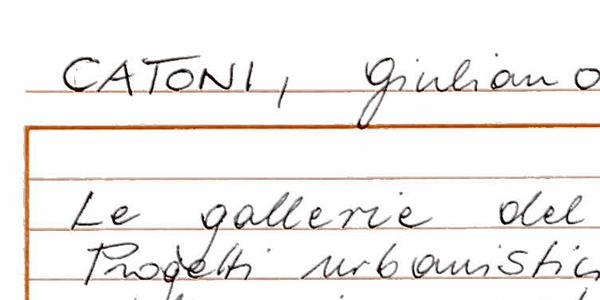 CATONI, Giuliano
Le gallerie del
Progetti urbanistic